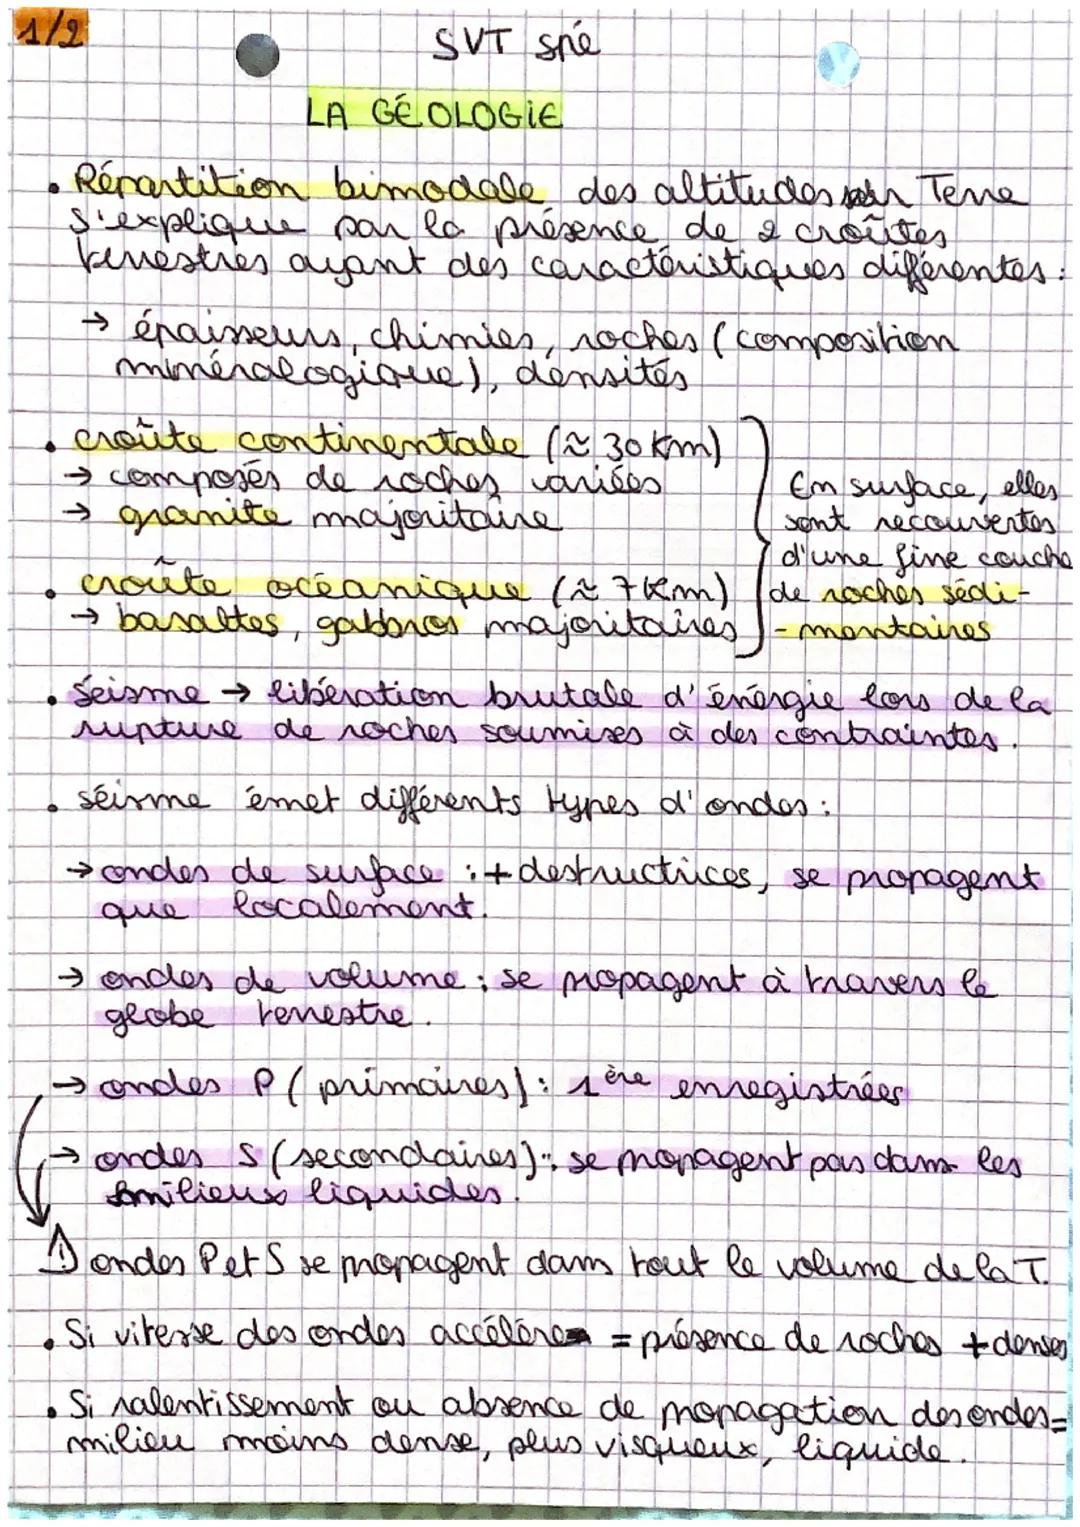 1/2
SVT spé
LA GÉOLOGIE
• Répartition bimodale des altitudes sur Terre
s'explique par la présence de 2 croûtes
terrestres ayant des caractéristiques différentes :
→ épaisseurs, chimies, roches (composition
minéralogique), densités
• croûte continentale (≈ 30 km)
→ composés de roches variées
→ granite majoritaire
• croûte océanique (≈ 7 km)
→ basaltes, gabbros majoritaires
En surface, elles
sont recouvertes
d'une fine couche
de roches sédi-
-mentaires
• Séisme → libération brutale d'énergie lors de la
rupture de roches soumises à des contraintes.
• séisme émet différents types d'ondes :
→ ondes de surface : + destructrices, se propagent
que localement.
→ ondes de volume : se propagent à travers le
globe terrestre.
→ ondes P (primaires) : 1ère enregistrées
→ ondes S (secondaires) : se propagent pas dans les
milieux liquides.
⚠ ondes P et S se propagent dans tout le volume de la T.
• Si vitesse des ondes accélère = présence de roches + denses
• Si ralentissement ou absence de propagation des ondes =
milieu moins dense, plus visqueux, liquide.